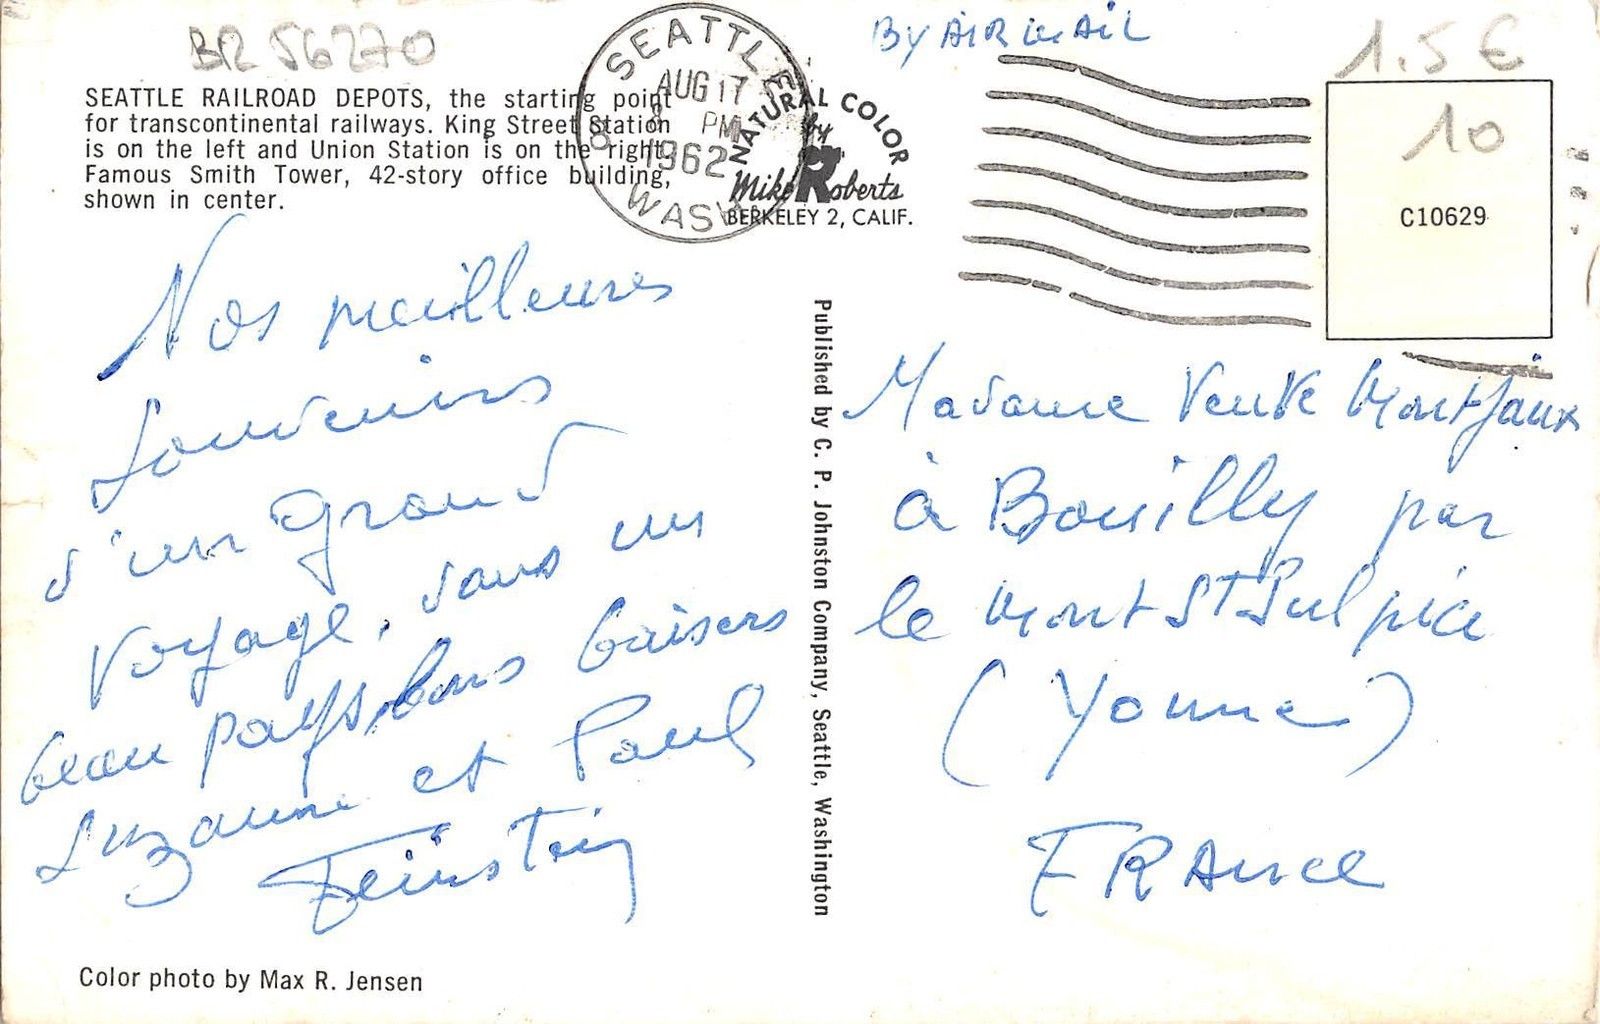 BR 56270
BY AIR MAIL
1.5 €
SEATTLE RAILROAD DEPOTS, the starting point
for transcontinental railways. King Street Station
is on the left and Union Station is on the right.
Famous Smith Tower, 42-story office building,
shown in center.
SEATTLE
AUG 17
PM
1962
WASH
NATURAL COLOR
by
Mike Roberts
BERKELEY 2, CALIF.
10
C10629
Nos meilleures
souvenirs
d'un grand
voyage, dans un
beau pays, bons baisers
Suzanne et Paul
Published by C. P. Johnston Company, Seattle, Washington
Madame Veuve Montjaux
à Bouilly par
le Mont St Sulpice
(Yonne)
FRANCE
Color photo by Max R. Jensen